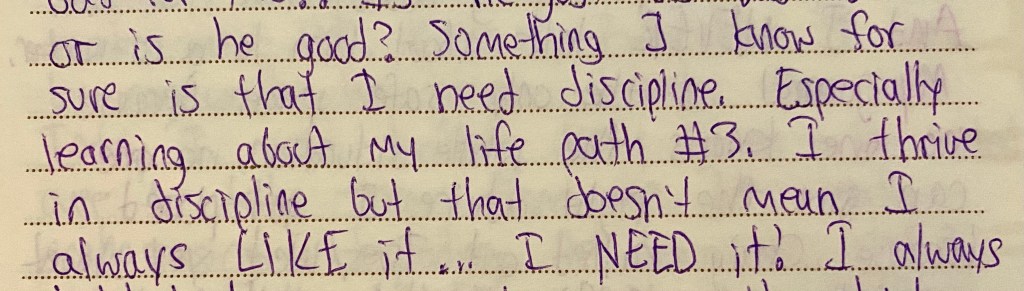 or is he good? Something I know for
sure is that I need discipline. Especially
learning about my life path #3. I thrive
in discipline but that doesn't mean I
always LIKE it... I NEED it! I always